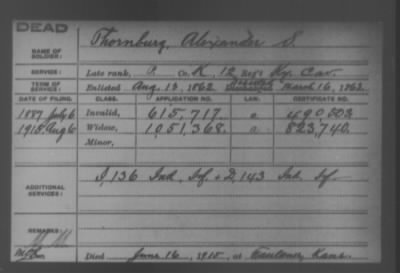 DEAD
NAME OF SOLDIER: Thornburg, Alexander S.
SERVICE: Late rank, P. Co. K, 12 Reg't Ky. Cav.
TERM OF SERVICE: Enlisted Aug. 13, 1862 March 16, 1863.
DATE OF FILING. CLASS. APPLICATION NO. LAW. CERTIFICATE NO.
1887 July 6 Invalid, 615,717. 490,603
1915 Aug 6 Widow, 1,051,368. a. 823,740.
Minor,
ADDITIONAL SERVICES: I, 136 Ind. Inf. + D, 143 Ind. Inf
REMARKS:
Died June 16, 1915, at Kans.